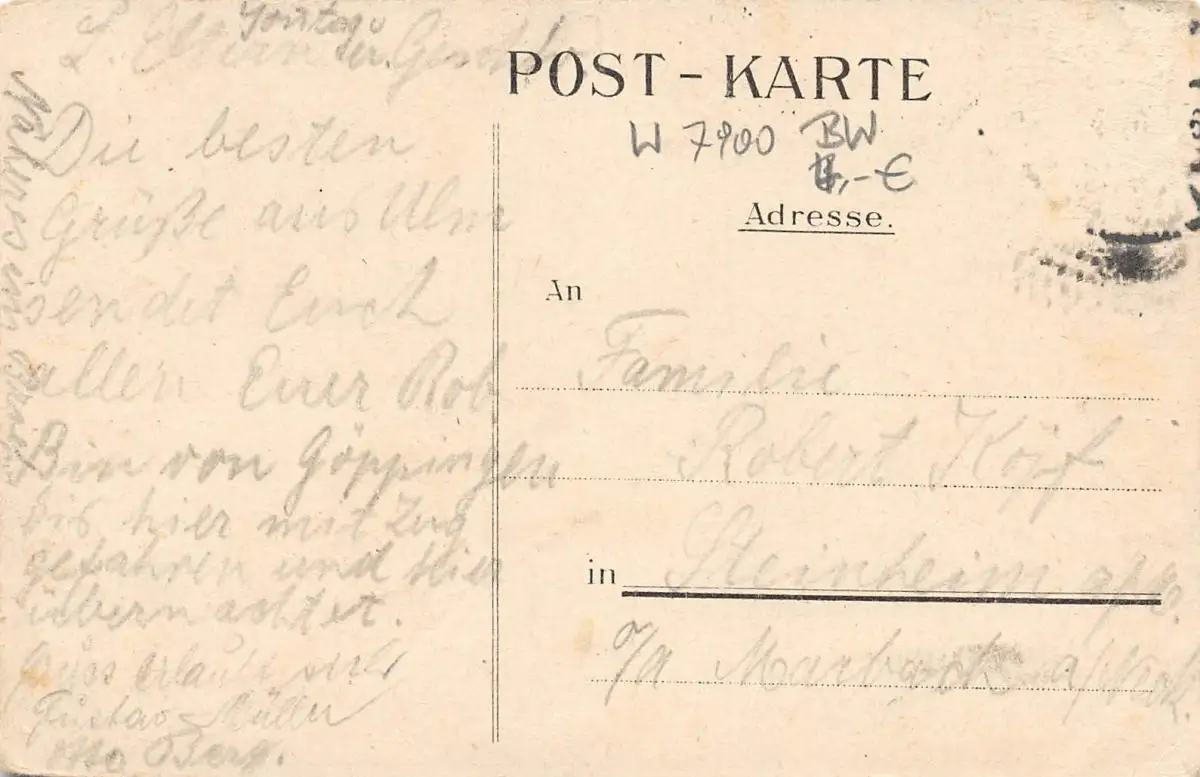 Sontag
L. Eltern u. Geschw
Die besten
Grüße aus Ulm
sendet Euch
allen Euer Rob
Bin von Göppingen
bis hier mit Zug
gefahren und hier
übernachtet.
Gruss erlaubt sich
Gustav Müller
Otto Berg.
POST-KARTE
W 7900 BW
,-€
Adresse.
An
Familie
Robert Köpf
in Steinheim a/M.
O/A Marbach a/Neck